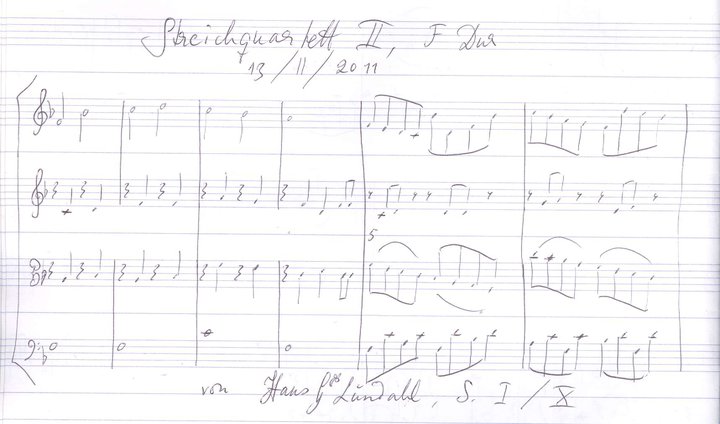 Streichquartett II, F Dur
13/II/2011
5
von Hans Lundahl, S. I/X